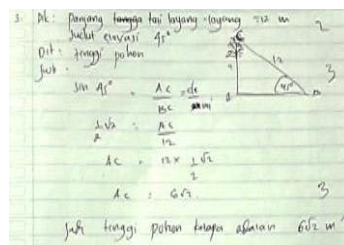 3. Dik: Panjang tangga tali layang-layang = 12 m
2
Sudut elevasi 45°
Dit: tinggi pohon
Jwb.
12
45°
3
sin 45° = AC / BC = de / mi
1/2 √2 = AC / 12
AC = 12 x 1/2 √2
AC = 6√2.
3
Jadi tinggi pohon kelapa adalah 6√2 m